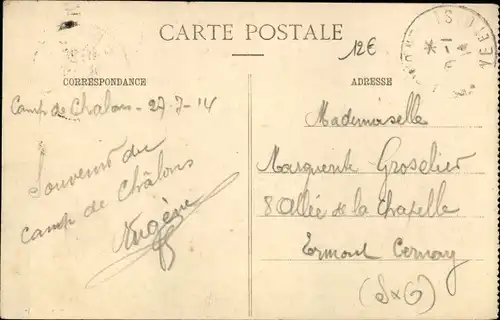 CARTE POSTALE
12€
CORRESPONDANCE
Camp de Chalons - 27-7-14
Souvenir du
camp de Châlons
Eugène
ADRESSE
Mademoiselle
Marguerite Groselier
8 Allée de la Chapelle
Ermont Cernay
(S&O)